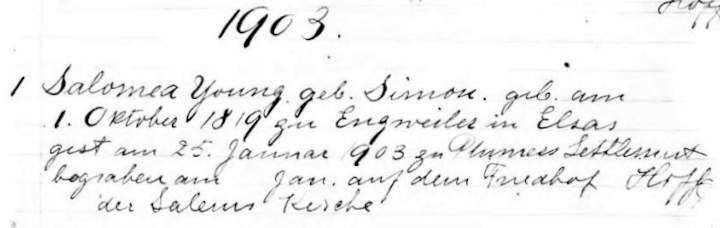 1903.
1 Salomea Young geb. Simon. geb. am
1. Oktober 1819 zu Engweiler in Elsas
gest am 25. Januar 1903 zu Plumess Settlement
begraben am Jan. auf dem Friedhof Hoff
der Salems Kirche